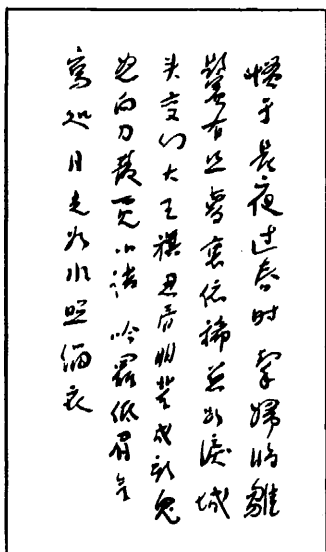 慣于長夜過春時挈婦將雛
鬢有絲夢裏依稀慈母淚城
頭變幻大王旗忍看朋輩成新鬼
怒向刀叢覓小詩吟罷低眉無
寫處月光如水照緇衣